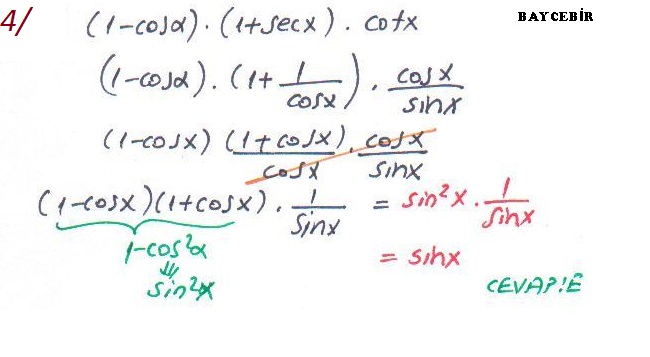 4/ (1-cosα).(1+secx).cotx
BAYCEBİR
(1-cosα).(1+1/cosx).cosx/sinx
(1-cosx)(1+cosx)/cosx.cosx/sinx
(1-cosx)(1+cosx).1/sinx = sin²x.1/sinx
1-cos²α
= sinx
⇓
sin²x
CEVAP!E